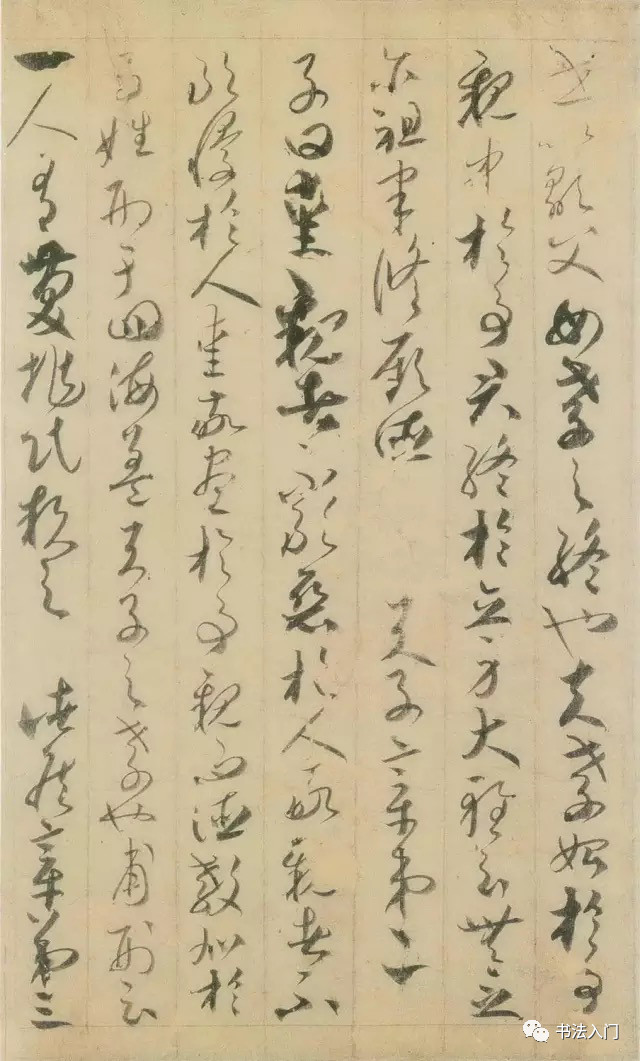 世以顯父母孝之終也夫孝始於事
親中於事君終於立身大雅云無念
尔祖聿脩厥德 天子章第二
子曰愛親者不敢惡於人敬親者不
敢慢於人愛敬盡於事親而德教加於
百姓刑于四海蓋天子之孝也甫刑云
一人有慶兆民賴之 諸侯章第三
书法入门